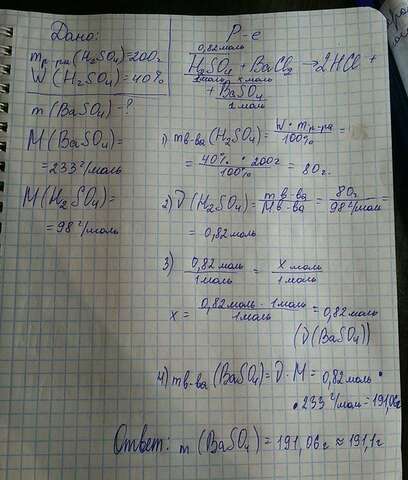 Дано:
m р-ра (H2SO4)=200г
W (H2SO4)=40%
m (BaSO4) - ?
M (BaSO4)=
=233 г/моль
M (H2SO4)=
=98 г/моль
Р-е
0,82моль х моль
H2SO4 + BaCl2 → 2HCl +
1моль
+ BaSO4
1 моль
1) m в-ва (H2SO4) = W · m р-ра / 100% =
= 40% · 200г / 100% = 80г.
2) ν (H2SO4) = m в-ва / M в-ва = 80г / 98 г/моль =
= 0,82моль
3) 0,82моль / 1моль = х моль / 1моль
х = 0,82моль · 1моль / 1моль = 0,82моль
(ν (BaSO4))
4) m в-ва (BaSO4) = ν · M = 0,82моль ·
· 233 г/моль = 191,06г
Ответ: m (BaSO4) = 191,06г ≈ 191,1г